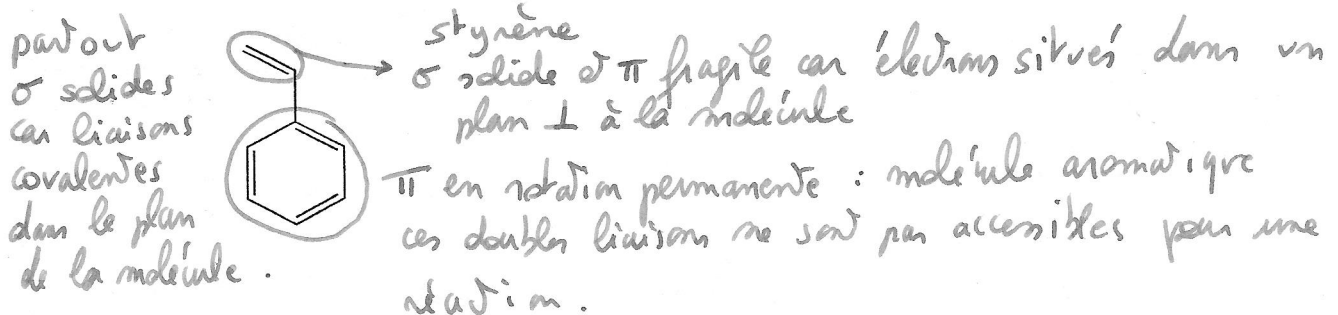 partout
σ solides
car liaisons
covalentes
dans le plan
de la molécule.
styrène
σ solide et π fragile car électrons situés dans un
plan ⊥ à la molécule
π en rotation permanente : molécule aromatique
ces doubles liaisons ne sont pas accessibles pour une
réaction.